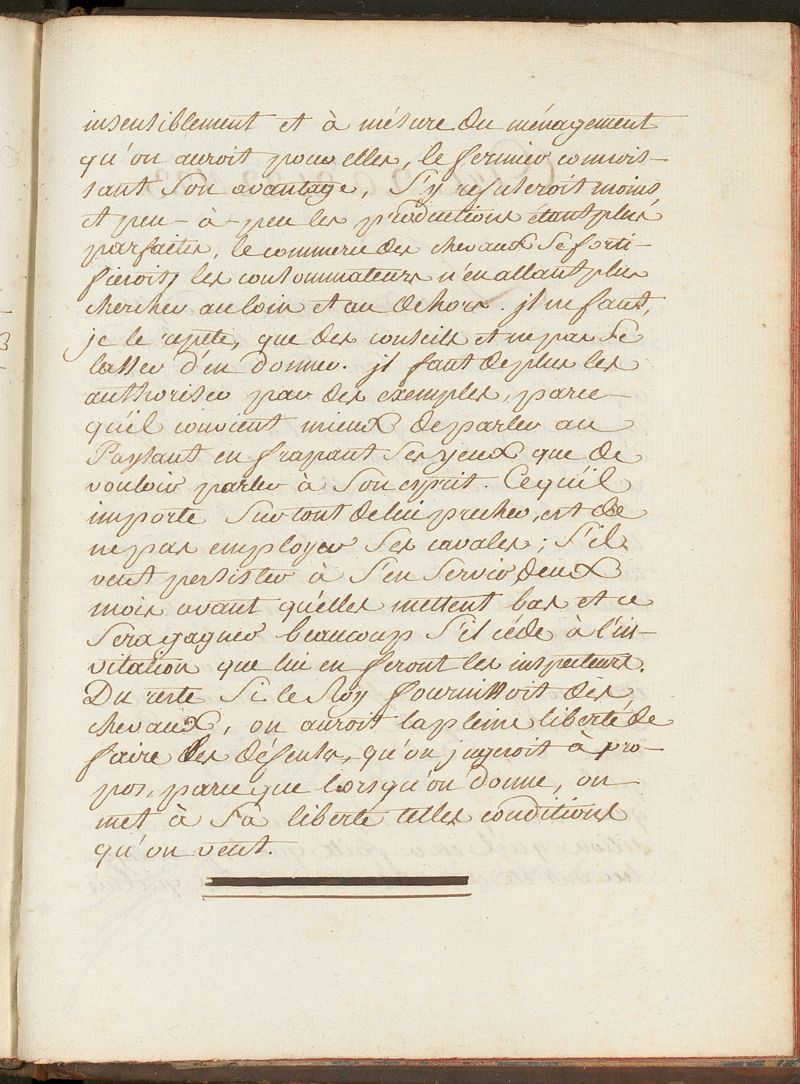 insensiblement et à mésure du ménagement
qu'on auroit pour elles, le fermier connois-
sant son avantage, s'y refuseroit moins
et peu-à-peu les productions étant plus
parfaites, le commerce des chevaux se forti-
fieroit, les consommateurs n'en allant plus
chercher au loin et au dehors. jl ne faut,
je le repéte, que des conseils et ne pas se
lasser d'en donner. jl faut de plus les
authoriser par des exemples, parce-
qu'il convient mieux de parler au
Paysant en frapant ses yeux que de
vouloir parler à son esprit. Ce qu'il
importe surtout de lui precher, est de
ne pas employer ses cavales; s'il
veut persister à s'en servir deux
mois avant qu'elles mettent bas et ce
sera gagner beaucoup s'il céde à l'in-
vitation que lui en feront les inspecteurs.
Du reste si le Roy fournissoit des
chevaux, on auroit la pleine liberté de
faire des défenses, qu'on jugeroit à pro-
pos, parce que lorsqu'on donne, on
met à sa liberté telles conditions
qu'on veut.